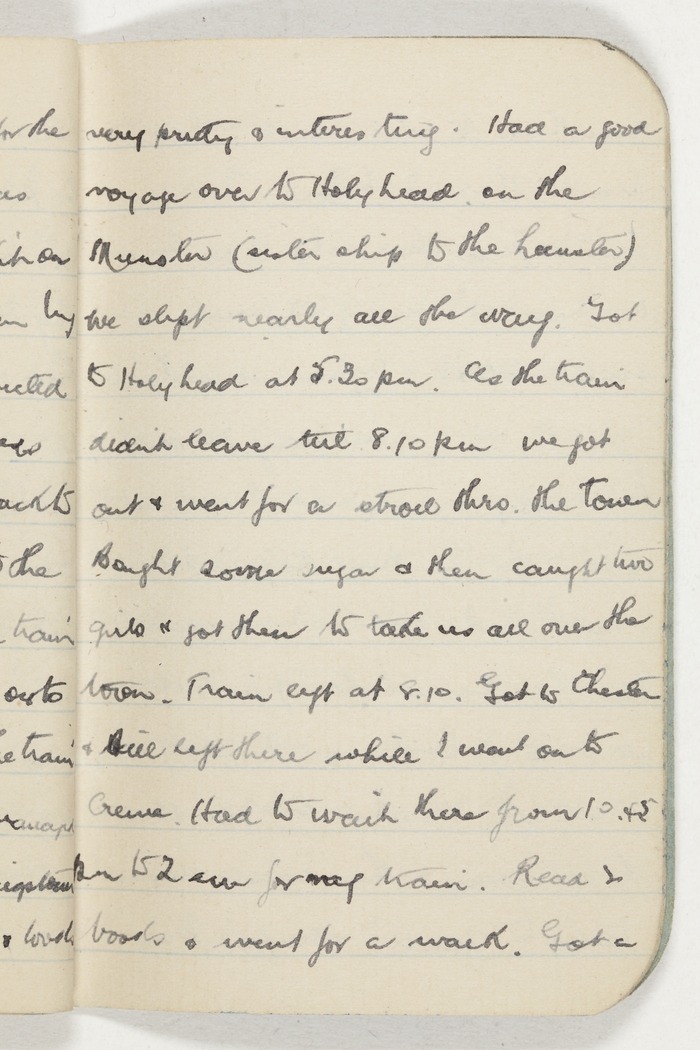 very pretty & interesting. Had a good
voyage over to Holyhead on the
Munster (sister ship to the Leinster)
we slept nearly all the way. Got
to Holyhead at 5.30 pm. As the train
didn't leave till 8.10 pm we got
out & went for a stroll thro. the town
Bought some sugar & then caught two
girls & got them to take us all over the
town. Train left at 8.10. Got to Chester
& Bill left there while I went on to
Crewe. Had to wait there from 10.45
pm to 2 am for my train. Read 2
books & went for a walk. Got a
for the
as
by
the
train
on to
train